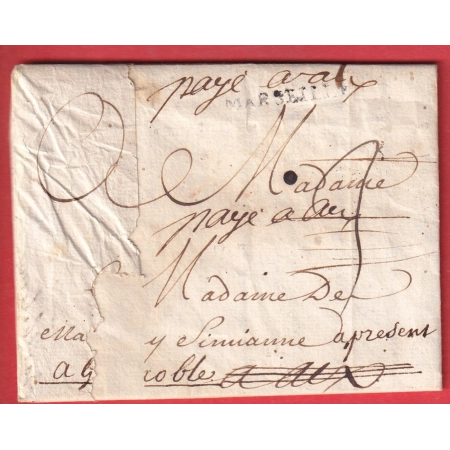 payé a aix
MARSEILLE
A Madame
payé a aix
Madame De
y Simianne apresent
a G oble a aix